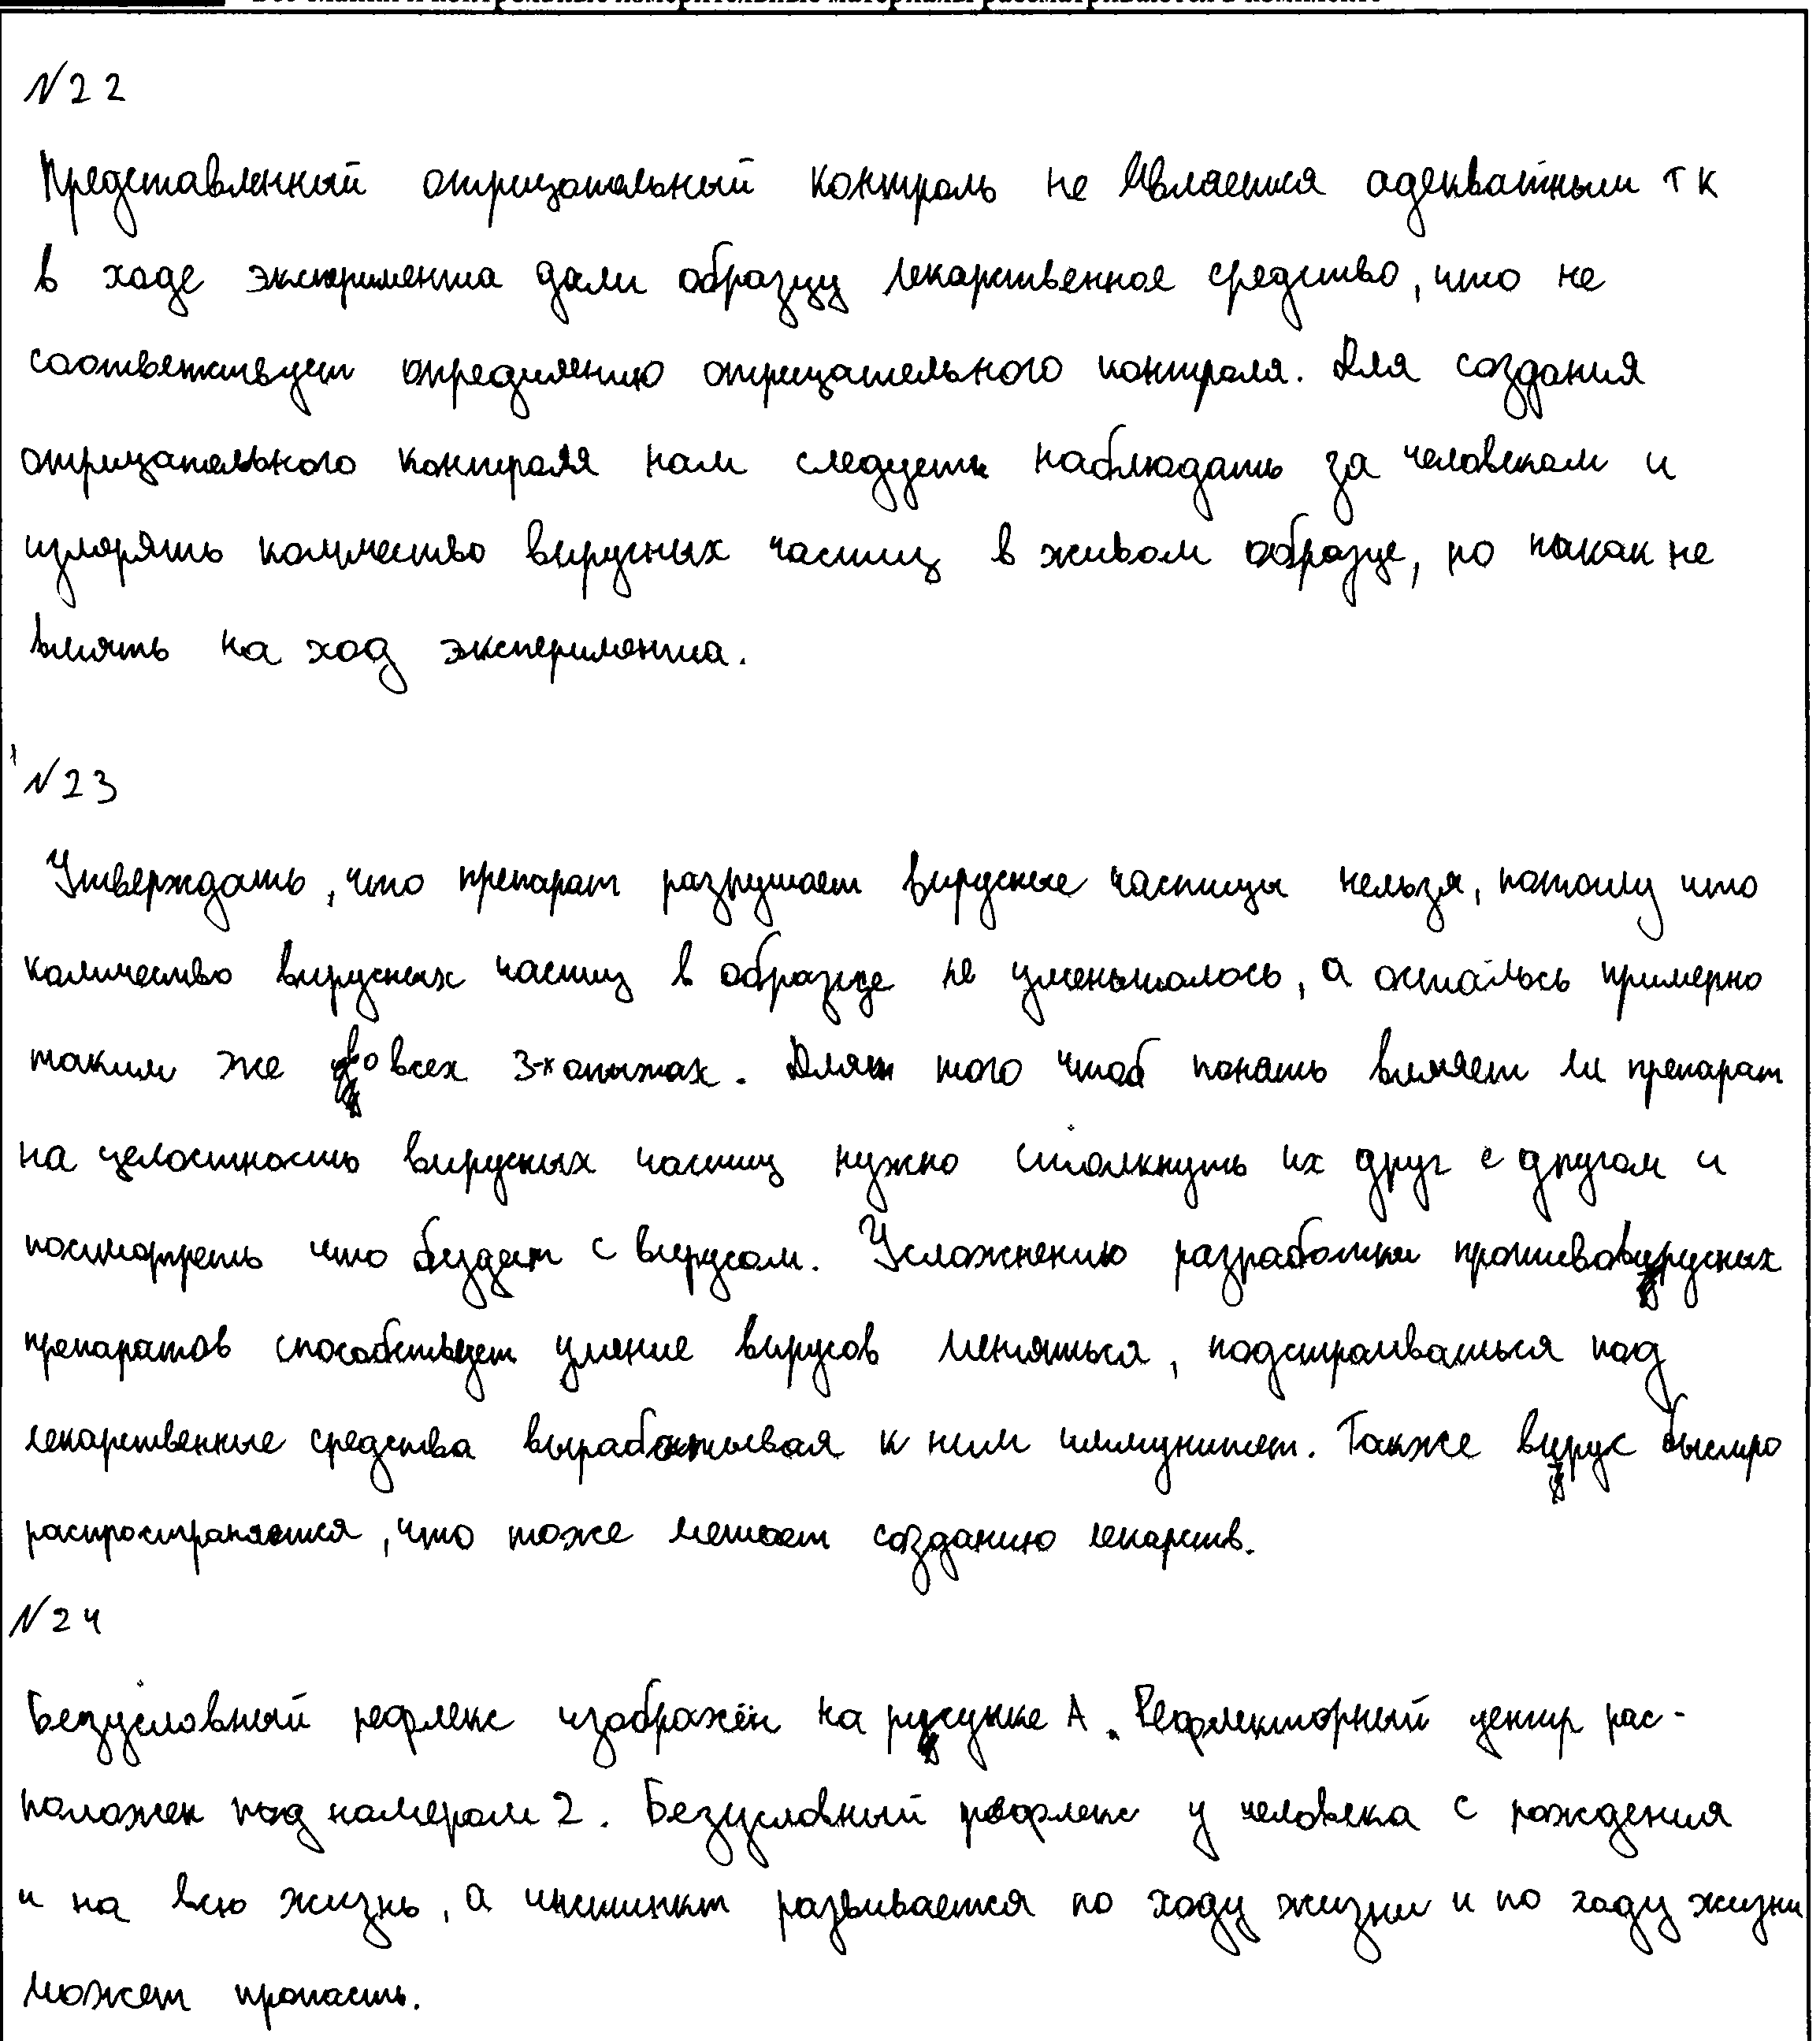 №22
Представленный отрицательный контроль не является адекватным т к
в ходе эксперимента дали образцу лекарственное средство, что не
соответствует определению отрицательного контроля. Для создания
отрицательного контроля нам следует наблюдать за человеком и
измерять количество вирусных частиц в живом образце, но никак не
влиять на ход эксперимента.
№23
Утверждать, что препарат разрушает вирусные частицы нельзя, потому что
количество вирусных частиц в образце не уменьшалось, а осталось примерно
таким же во всех 3-х опытах. Для того чтоб понять влияет ли препарат
на целостность вирусных частиц нужно столкнуть их друг с другом и
посмотреть что будет с вирусом. Усложнению разработки противовирусных
препаратов способствует умение вирусов меняться, подстраиваться под
лекарственные средства вырабатывая к ним иммунитет. Также вирус быстро
распространяется, что тоже мешает созданию лекарств.
№24
Безусловный рефлекс изображён на рисунке А. Рефлекторный центр рас-
положен под номером 2. Безусловный рефлекс у человека с рождения
и на всю жизнь, а инстинкт развивается по ходу жизни и по ходу жизни
может пропасть.